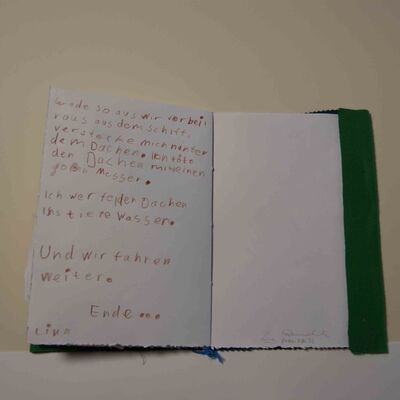 grade so aus wir vorbei
raus aus dem schift.
verstecke mich hinter
dem Dachen. Ich töte
den Dachen mit einen
großn Messer.
Ich wer fe den Dachen
ins tiefe Wasser.
Und wir fahren
weiter.
Ende...
Linn